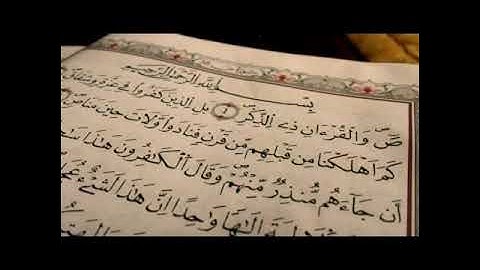 بِسْمِ اللَّهِ الرَّحْمَٰنِ الرَّحِيمِ
صٓ وَالْقُرْءَانِ ذِى الذِّكْرِ ١ بَلِ الَّذِينَ كَفَرُوا فِى عِزَّةٍ وَشِقَاقٍ
كَمْ أَهْلَكْنَا مِن قَبْلِهِم مِّن قَرْنٍ فَنَادَوا وَّلَاتَ حِينَ مَنَاصٍ
أَن جَآءَهُم مُّنذِرٌ مِّنْهُمْ وَقَالَ الْكَٰفِرُونَ هَٰذَا
إِلَٰهًا وَٰحِدًا إِنَّ هَٰذَا لَشَىْءٌ